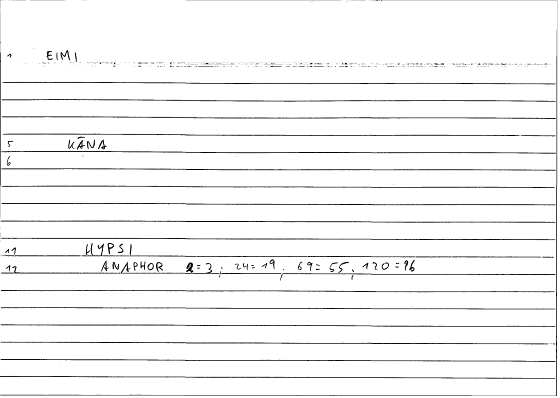 1 EIMI
5 KĀNA
6
11 HYPSI
12 ANAPHOR 2=3; 24=19; 69=55; 120=96